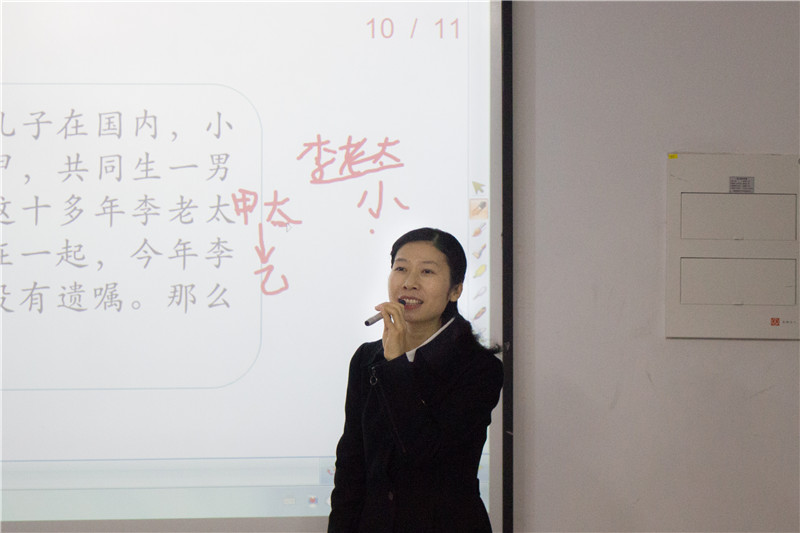 10 / 11
儿子在国内，小
甲，共同生一男
这十多年李老太
在一起，今年李
没有遗嘱。那么
李老太
小
甲太
乙